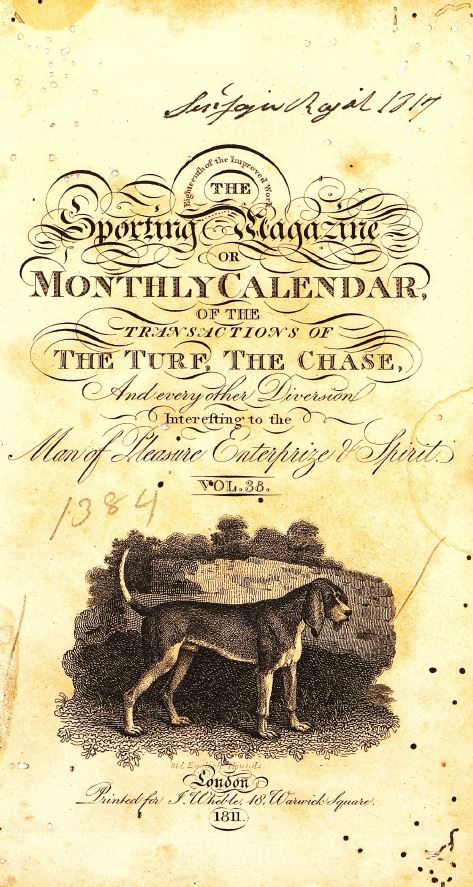 1817
Eighteenth of the Improved Work
THE
Sporting Magazine
OR
MONTHLY CALENDAR,
OF THE
TRANSACTIONS OF
THE TURF, THE CHASE,
And every other Diversion
Interesting to the
Man of Pleasure Enterprize & Spirit.
VOL. 38.
1384
Old English Hound.
London
Printed for J. Wheble, 18, Warwick Square.
1811.